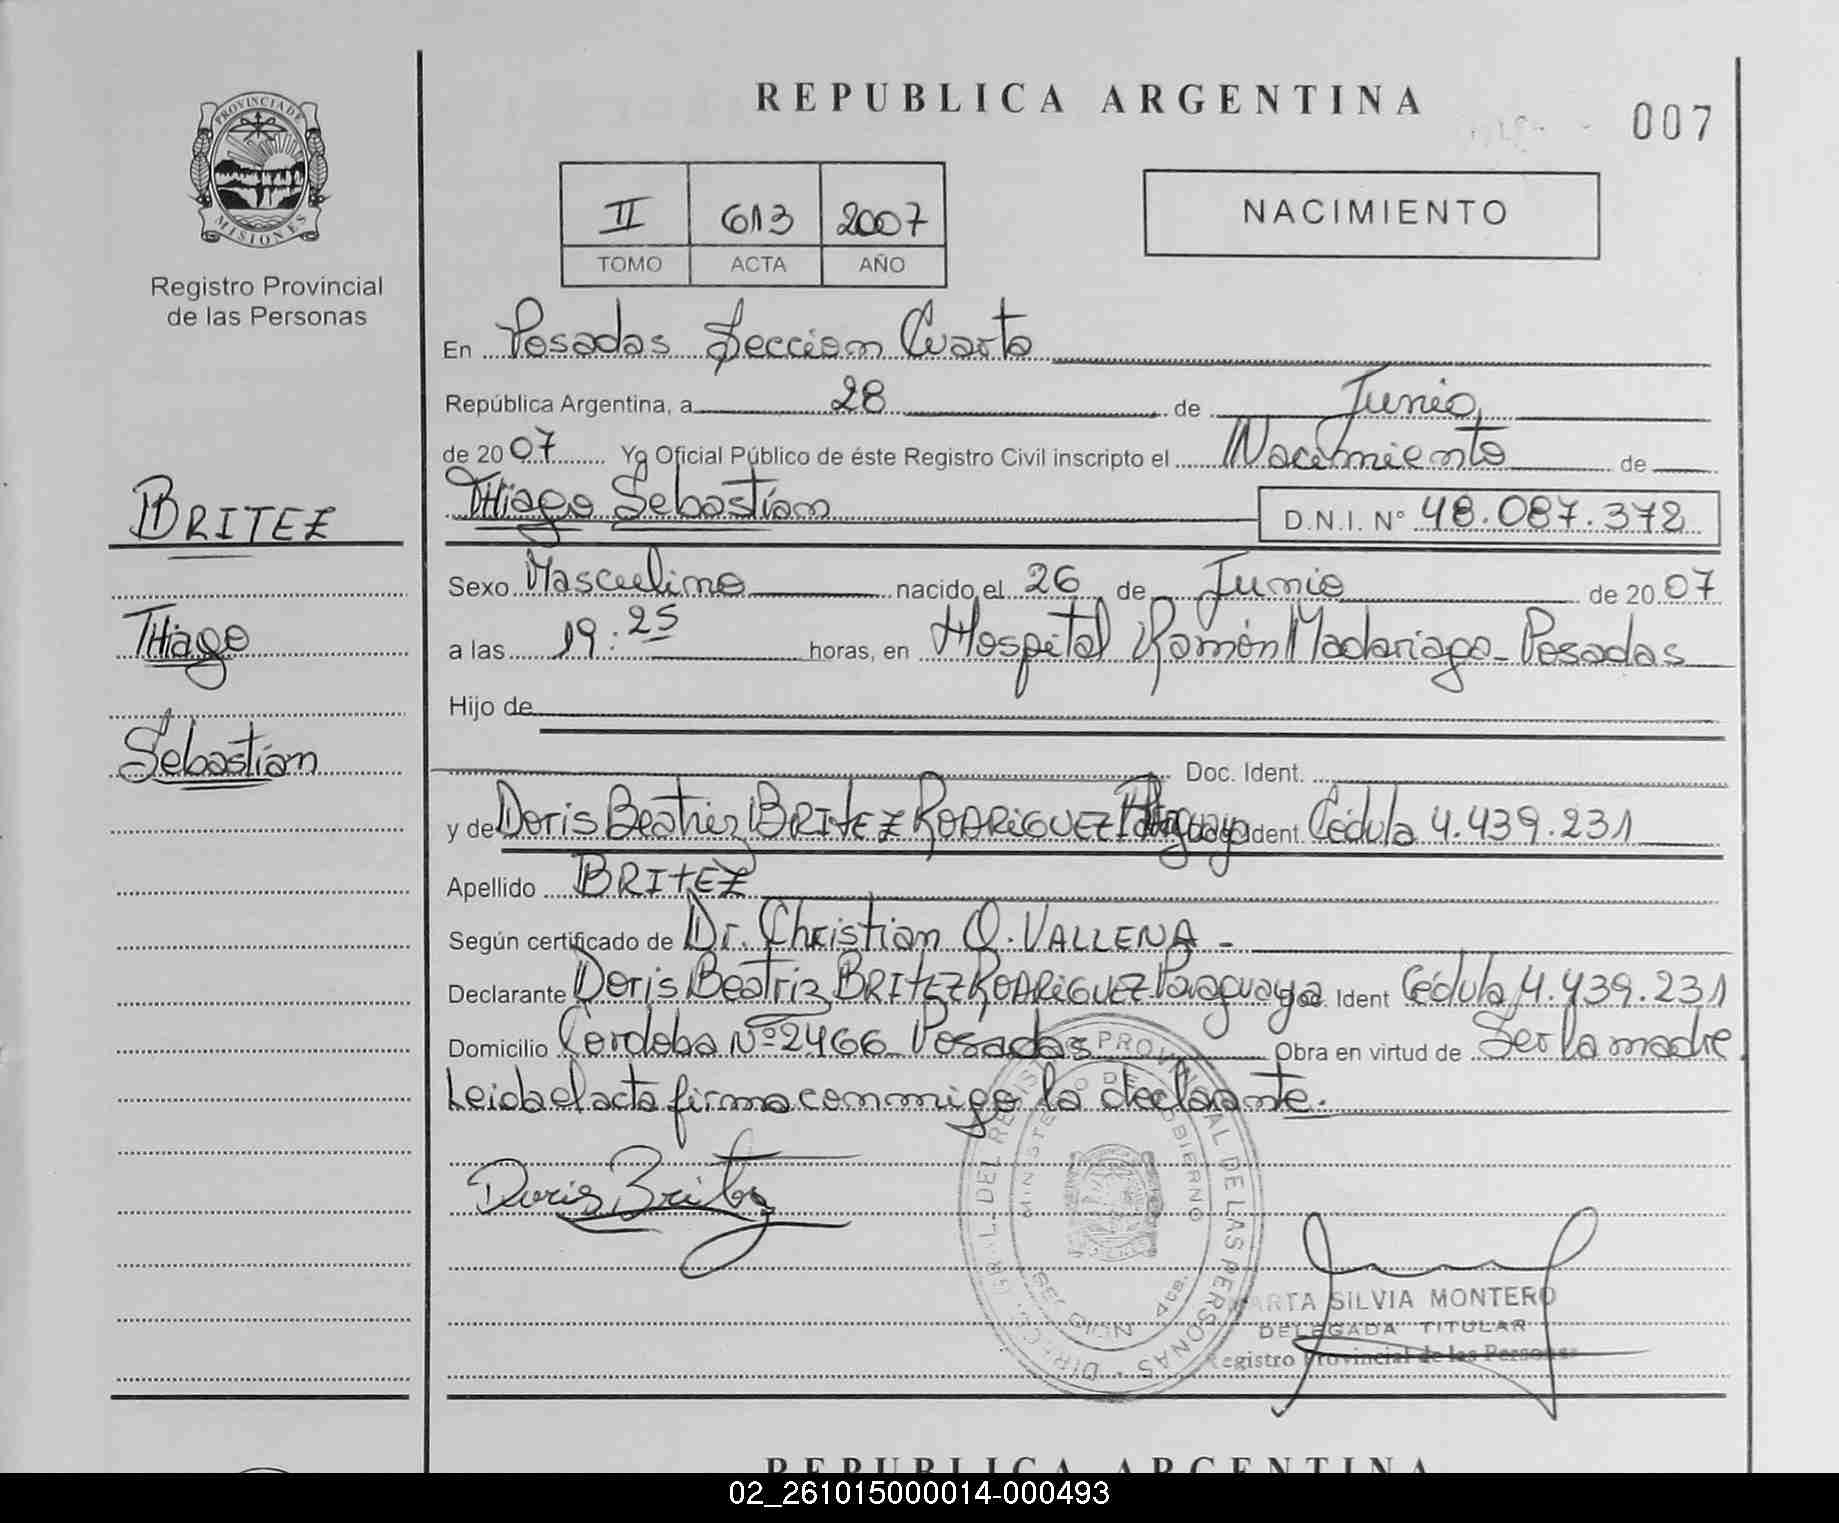 PROVINCIA DE
MISIONES
Registro Provincial
de las Personas
BRITEZ
Thiago
Sebastián
REPUBLICA ARGENTINA
007
II 613 2007
TOMO ACTA AÑO
NACIMIENTO
En Posadas Sección Cuarta
República Argentina, a 28 de Junio
de 2007 Yo Oficial Público de éste Registro Civil inscripto el Nacimiento de
Thiago Sebastián D.N.I. N° 48.087.372
Sexo Masculino nacido el 26 de Junio de 2007
a las 19:25 horas, en Hospital Ramón Madariaga - Posadas
Hijo de
Doc. Ident.
y de Doris Beatriz BRITEZ RODRIGUEZ Paraguaya Ident. Cédula 4.439.231
Apellido BRITEZ
Según certificado de Dr. Christian O. VALLENA -
Declarante Doris Beatriz BRITEZ RODRIGUEZ Paraguaya Doc. Ident Cédula 4.439.231
Domicilio Cordoba Nº 2466 Posadas Obra en virtud de Ser la madre
Leida el acta firma conmigo la declarante.
Doris Britez
DIRECC. GRAL. DEL REGISTRO PROVINCIAL DE LAS PERSONAS
MINISTERIO DE GOBIERNO
SECCION 4ta.
MARTA SILVIA MONTERO
DELEGADA TITULAR
Registro Provincial de las Personas
REPUBLICA ARGENTINA
02_261015000014-000493